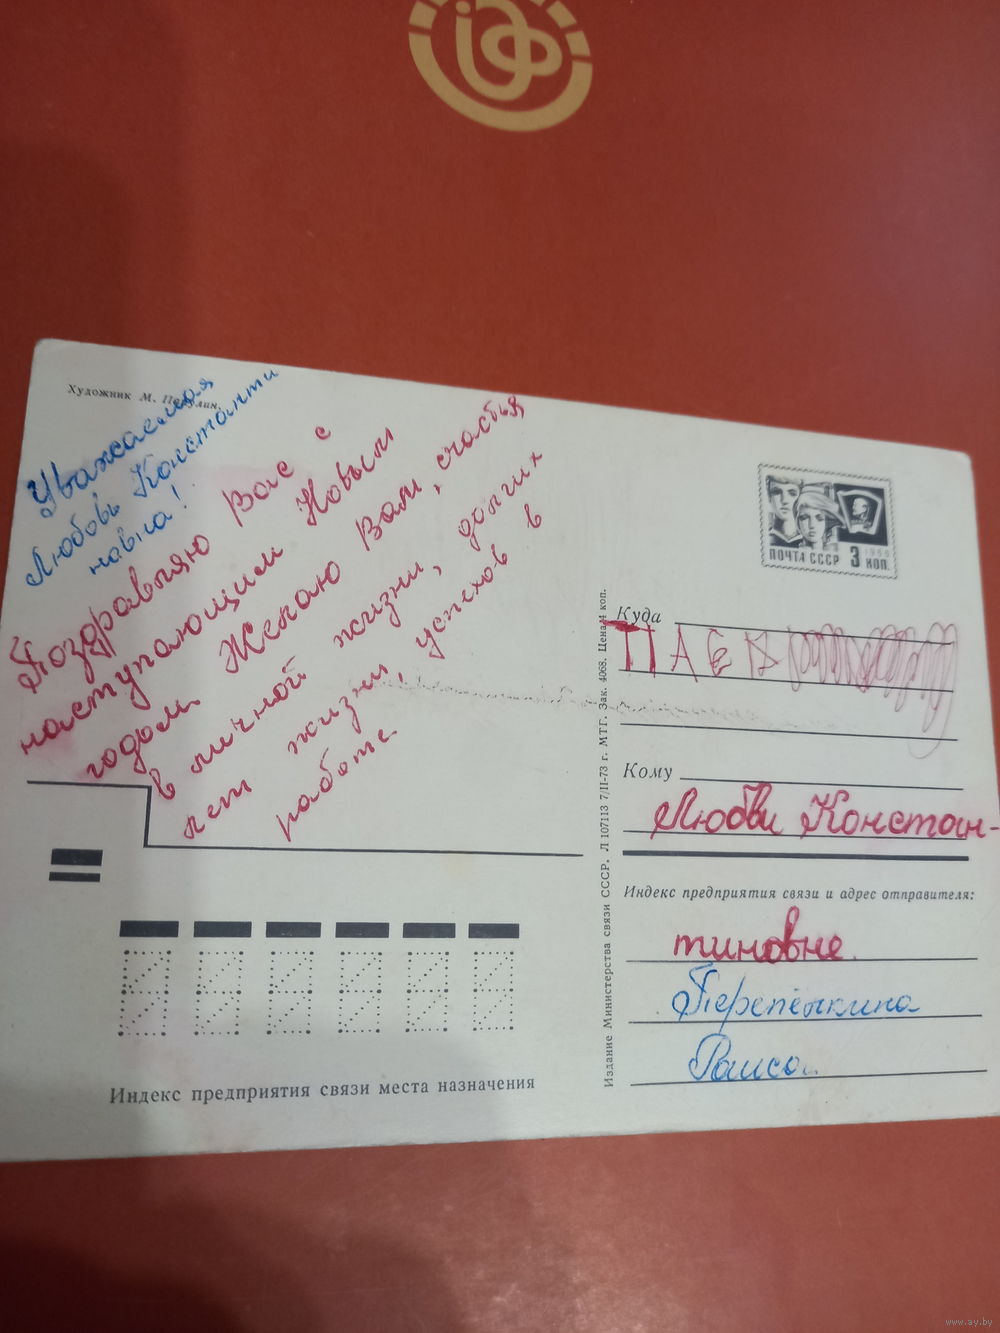 Художник М.
Уважаемая
Любовь Константи
новна!
Поздравляю Вас с
наступающим Новым
годом. Желаю Вам, счастья
в личной жизни, долгих
лет жизни, успехов в
работе.
Индекс предприятия связи места назначения
Издание Министерства связи СССР. Л 107113 7/II-73 г. МТГ. Зак. 4068. Цена 4 коп.
ПОЧТА СССР 3 КОП.
1966
Куда
Кому
Любви Констан-
Индекс предприятия связи и адрес отправителя:
тиновне.
Перепёлкина
Раиса.
www.ay.by